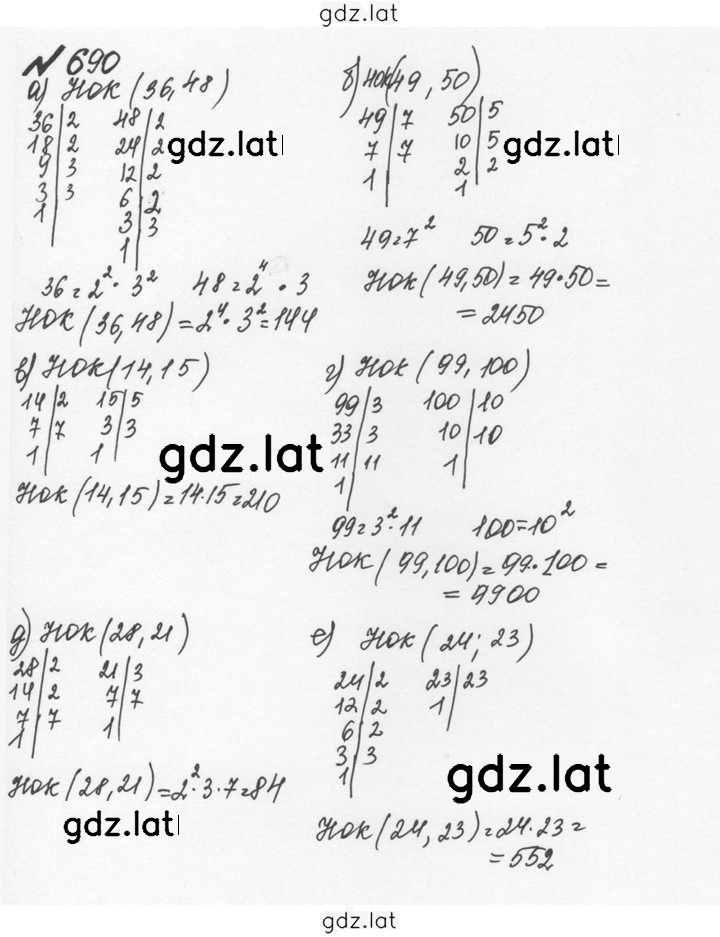 gdz.lat
№ 690
а) НОК (36,48)
36|2 48|2
18|2 24|2
9|3 12|2
3|3 6|2
1| 3|3
1|
gdz.lat
36=2²·3² 48=2⁴·3
НОК (36,48)=2⁴·3²=144
б) НОК(49,50)
49|7 50|5
7|7 10|5
1| 2|2
1|
gdz.lat
49=7² 50=5²·2
НОК (49,50)=49·50=
=2450
в) НОК(14,15)
14|2 15|5
7|7 3|3
1| 1|
gdz.lat
НОК (14,15)=14·15=210
г) НОК (99,100)
99|3 100|10
33|3 10|10
11|11 1|
1|
99=3²·11 100=10²
НОК (99,100)=99·100=
=9900
д) НОК(28,21)
28|2 21|3
14|2 7|7
7|7 1|
1|
НОК (28,21)=2²·3·7=84
gdz.lat
е) НОК (24; 23)
24|2 23|23
12|2 1|
6|2
3|3
1|
gdz.lat
НОК (24,23)=24·23=
=552
gdz.lat